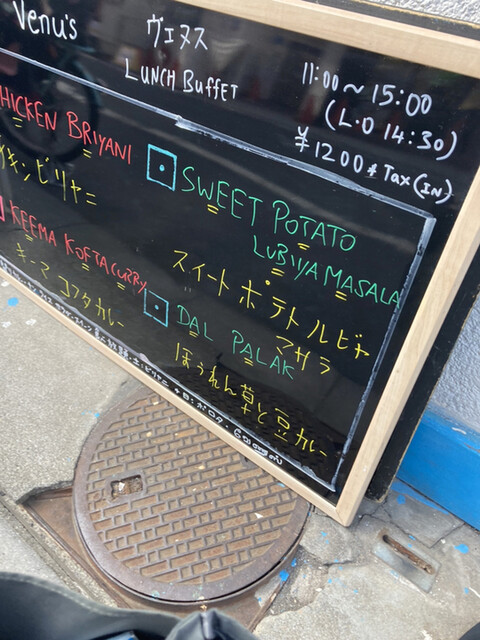 Venu's
ヴェヌス
LUNCH BUFFET
11:00~15:00
(L.O 14:30)
¥1200 * Tax(IN)
CHICKEN BRIYANI
チキンビリヤニ
KEEMA KOFTA CURRY
キーマ コフタカレー
SWEET POTATO
LUBIYA MASALA
スイートポテトルビヤ
マサラ
DAL PALAK
ほうれん草と豆カレー